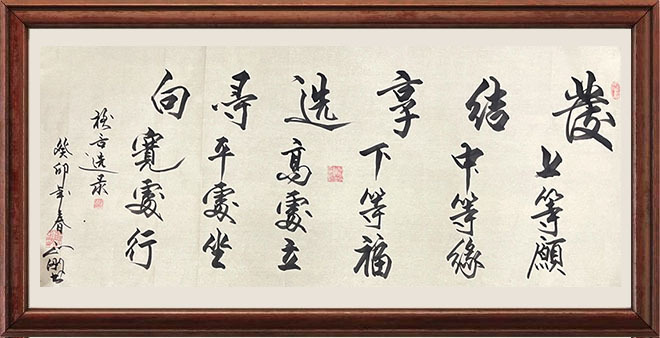 發上等願
结中等緣
享下等福
选高處立
尋平處坐
向寬處行
格言选录
癸卯年春